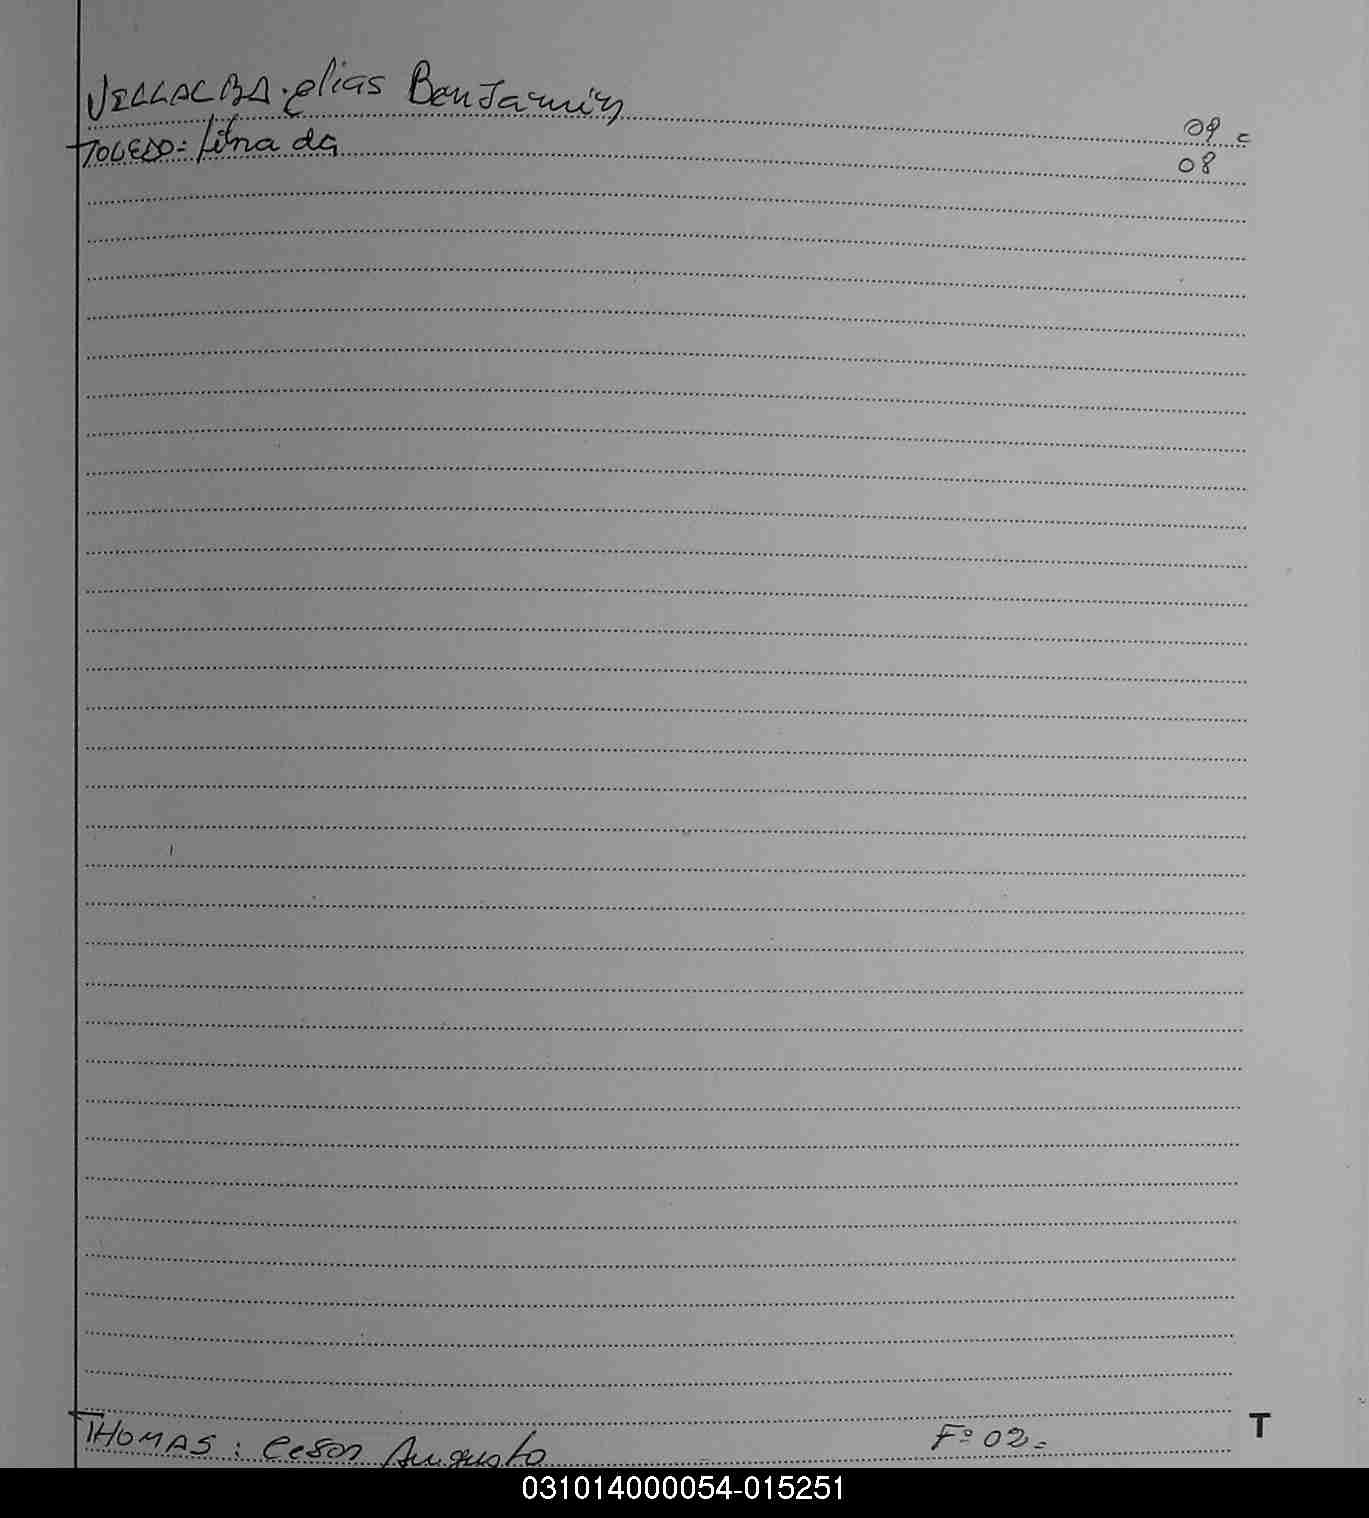 VILLALBA. elias Benjamin 09 =
TOLEDO = 08
T
THOMAS : Cesar Augusto Fº 02 =
031014000054-015251